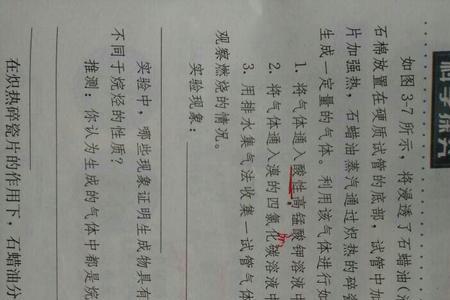 科学探究
如图3-7所示，将浸透了石蜡油(
石棉放置在硬质试管的底部，试管中加
片加强热，石蜡油蒸汽通过炽热的碎瓷
生成一定量的气体。利用该气体进行如
1. 将气体通入酸性高锰酸钾溶液中
2. 将气体通入溴的四氯化碳溶液中
3. 用排水集气法收集一试管气体
观察燃烧的情况。
实验现象：
实验中，哪些现象证明生成物具有
不同于烷烃的性质？
推测：你认为生成的气体中都是烷
在炽热碎瓷片的作用下，石蜡油分